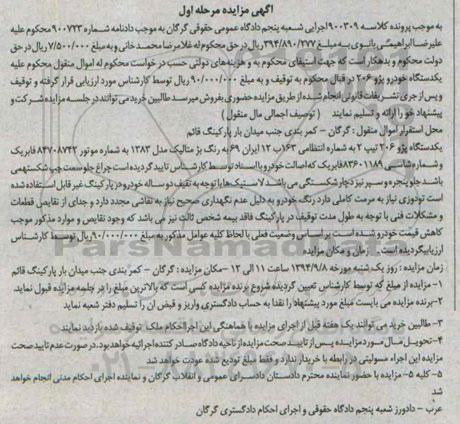 آگهی مزایده مرحله اول
به موجب پرونده کلاسه ۹۰۰۳۰۹ اجرایی شعبه پنجم دادگاه عمومی حقوقی گرگان به موجب دادنامه شماره ۹۰۰۷۲۳ محکوم علیه
علیرضا ابراهیمی بانوی به مبلغ ۳۹۴/۸۹۰/۲۷۷ ریال در حق محکوم له غلامرضا محمدخانی و به مبلغ ۷/۵۰۰/۰۰۰ ریال در حق
دولت محکوم و بدهکار است که جهت استیفای محکوم به و هزینه‌های دولتی حسب درخواست محکوم له اموال منقول محکوم علیه
یکدستگاه خودرو پژو ۲۰۶ در قبال محکوم به توقیف و به مبلغ ۹۰/۰۰۰/۰۰۰ ریال توسط کارشناس مورد ارزیابی قرار گرفته و توقیف
و پس از جری تشریفات قانونی انجام شده از طریق مزایده حضوری بفروش میرسد طالبین خرید می توانند در جلسه مزایده شرکت و
پیشنهاد خود را ارائه و تسلیم نمایند ( توصیف اجمالی مال منقول )
محل استقرار اموال منقول : گرگان – کمربندی جنب میدان بار پارکینگ قائم
یکدستگاه پژو ۲۰۶ تیپ ۲ به شماره انتظامی ۱۶۳ ب ۱۲ ایران ۶۹ به رنگ بژ متالیک مدل ۱۳۸۳ به شماره موتور ۸۳۷۰۸۷۴۲ فابریک
و شماره شاسی ۸۳۶۰۱۱۸۹ فابریک که اصالت خودرو با اسناد توسط کارشناس تایید گردیده است چراغ جلو سمت چپ شکستهمی
باشد جلو پنجره و سپر نیز دچار شکستگی می باشد لاستیک‌ها با توجه به تقیف دو ساله خودرو در پارکینگ غیر قابل استفاده شده
است تودوزی نیاز به مرمت کاملی دارد رنگ خودرو به دلیل عدم نگهداری صحیح نیاز به نقاشی مجدد دارد و جدای از نقایص قطعات
و مشکلات فنی با توجه به طول مدت توقیف در پارکینگ فاقد بیمه شخص ثالث نیز می باشد که وجود نقایص و موارد مذکور موجب
کاهش قیمت خودرو شده است بر اساس وضعیت فعلی با لحاظ کلیه عوامل مذکور به مبلغ ۹۰/۰۰۰/۰۰۰ ریال توسط کارشناس
ارزیابی گردیده است . زمان و مکان مزایده
زمان مزایده : روز یک شنبه مورخه ۱۳۹۴/۹/۸ ساعت ۱۱ الی ۱۲ –مکان مزایده : گرگان – کمربندی جنب میدان بار پارکینگ قائم
۱- مزایده از مبلغ که توسط کارشناس تعیین گردیده شروع برنده مزایده کسی است که بالاترین مبلغ را در جلسه مزایده قبول نماید.
۲-برنده مزایده می بایست مبلغ مورد پیشنهاد را نقدا به حساب دادگستری واریز و قبض آن را تسلیم دفتر شعبه نماید
۳- طالبین خرید می توانند یک هفته قبل از اجرای مزایده با هماهنگی این اجرا احکام ملک توقیف شده بازدید نمایند
۴-تحویل مال مورد مزایده پس از تایید صحت مزایده از ناحیه دادگاه صادرکننده اجرائیه خواهد بود.در صورت عدم تایید صحت
مزایده این اجراء مسولیتی در رابطه با خریدار ندارد و فقط مبلغ تودیع شده عودت خواهد شد
۵- کلیه ۵- مزایده با حضور نماینده محترم دادستان دادسرای عمومی و انقلاب گرگان و نماینده اجرای احکام مدنی انجام خواهد
شد
عرب – دادورز شعبه پنجم دادگاه حقوقی و اجرای احکام دادگستری گرگان
ParsNamadData